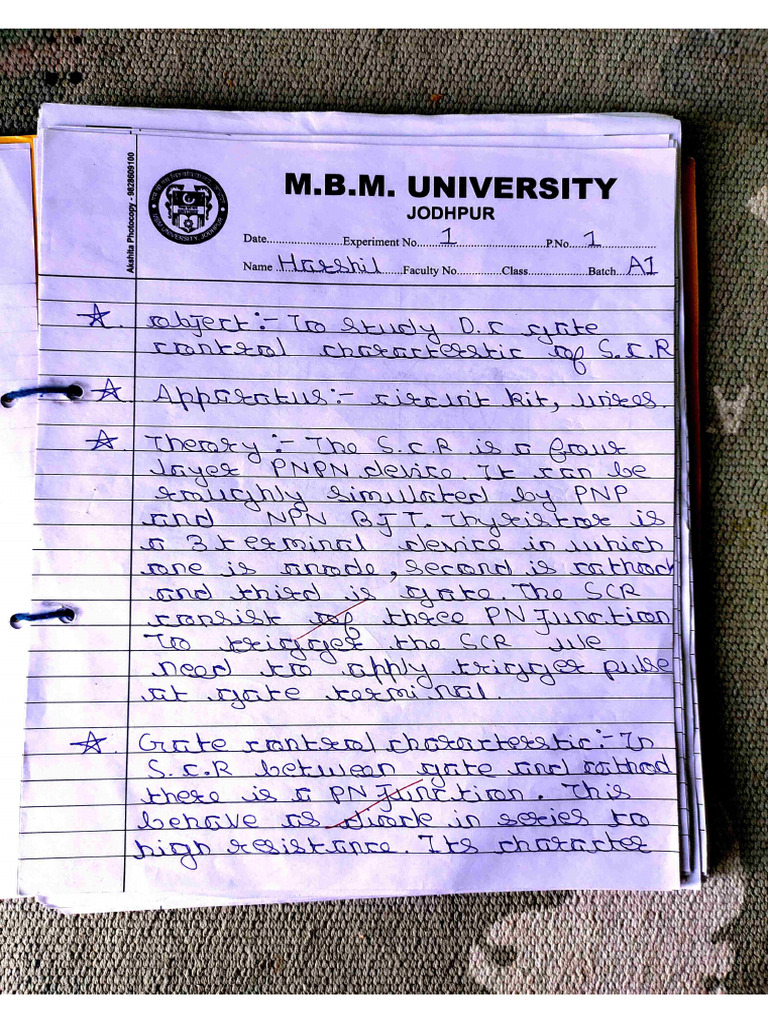 Akshita Photocopy - 9828609100
M.B.M. UNIVERSITY
JODHPUR
Date.....................Experiment No.....1.....P.No....1....
Name Harshil Faculty No..............Class.............Batch A1
☆. object:- To study D.C gate
control characterstic of S.C.R
☆ Apparatus:- circuit kit, wires.
☆ Theory:- The S.C.R is a four
layer PNPN device. It can be
roughly simulated by PNP
and NPN BJT. Thyristor is
a 3 terminal device in which
one is anode, second is cathod
and third is gate. The SCR
consist of three PN Junction
To trigger the SCR we
need to apply trigger pulse
at gate terminal.
☆. Gate control characterstic:- In
S.C.R between gate and cathod
there is a PN Junction. This
behave as diode in series to
high resistance. Its character